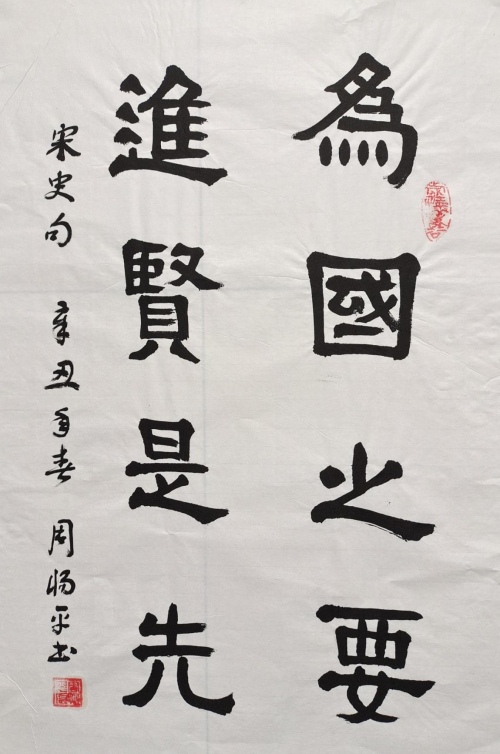 為國之要
進賢是先
宋史句 辛丑年春 周 平书